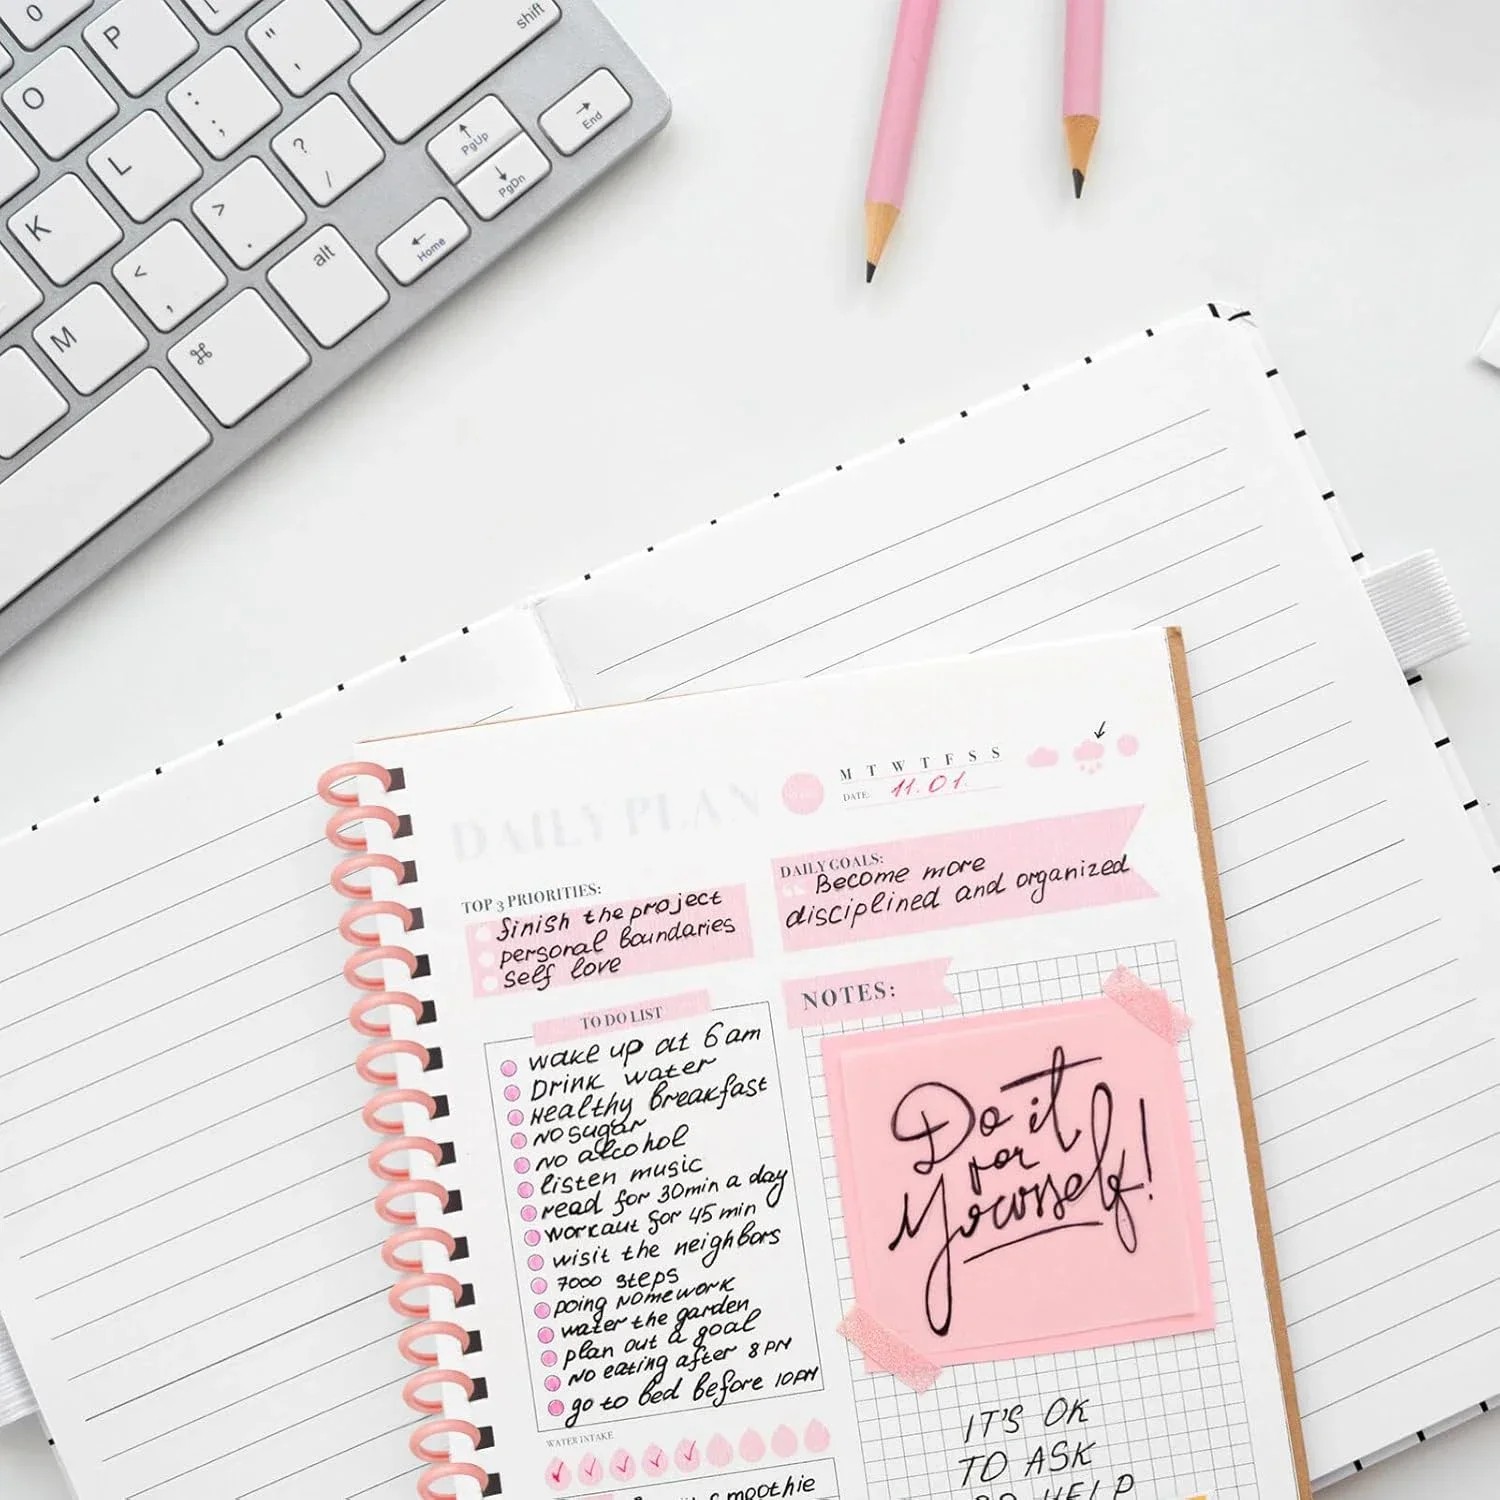 O
P
"
'
shift
O
:
;
?
/
PgUp
PgDn
End
L
K
>
.
alt
Home
<
,
M
⌘
DAILY PLAN
M T W T F S S
DATE: 11.01.
TOP 3 PRIORITIES:
finish the project
personal boundaries
self love
DAILY GOALS:
Become more
disciplined and organized
TO DO LIST
wake up at 6 am
Drink water
Healthy breakfast
no sugar
no alcohol
listen music
read for 30min a day
workaut for 45 min
wisit the neighbors
7000 steps
Doing Homework
water the garden
plan out a goal
no eating after 8 PM
go to bed before 10PM
WATER INTAKE
smoothie
NOTES:
Do it
for
Yourself!
IT'S OK
TO ASK
HELP